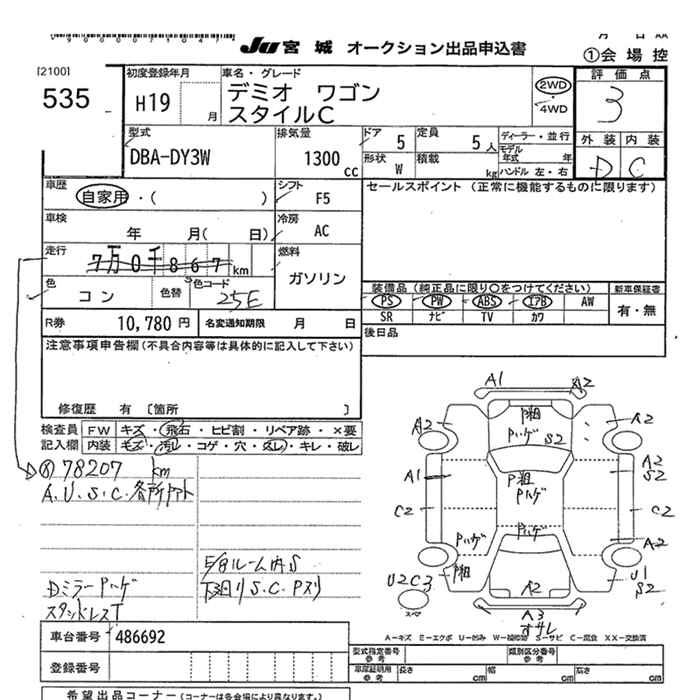 JU 宮城 オークション出品申込書
①会場控
[2100]
535
初度登録年月
H19 月
車名・グレード
デミオ ワゴン
スタイルC
2WD
4WD
評価点
3
外装 内装
D C
型式
DBA-DY3W
排気量
1300 CC
ドア 5
定員 5人
形状 W
積載 kg
ディーラー・並行
モデル年式 年
ハンドル 左・右
車歴
自家用・( )
シフト
F5
セールスポイント (正常に機能するものに限ります)
車検
年 月( 日)
冷房
AC
走行
7万0千867km
燃料
ガソリン
色
コン
色替
色コード
25E
装備品 (純正品に限り○をつけてください)
PS PW ABS エアB AW
SR ナビ TV カワ
新車保証書
有・無
R券 10,780円
名変通知期限 月 日
後日品
注意事項申告欄(不具合内容等は具体的に記入して下さい)
修復歴 有 [箇所 ]
検査員 FW キズ・飛石・ヒビ割・リペア跡・×要
記入欄 内装 キズ・汚レ・コゲ・穴・スレ・キレ・破レ
78207 km
A.U.S.C.各所
Dミラー Pハゲ
スタッドレスT
ルーム内S
下廻りS.C.Pスリ
A1 A2
A2 P粗 Pハゲ S2 A2
A1 P粗 Pハゲ A2 S2
C2 C2
Pハゲ Pハゲ A2
P粗 U2C3 A2 U1 S2
スペア
A3
オサレ
A-キズ E-エクボ U-凹み W-補修跡 S-サビ C-腐食 XX-交換済
車台番号 486692
型式指定番号 参考
類別区分番号 参考
登録番号
車庫証明用 参考 長さ cm 幅 cm 高さ cm
希望出品コーナー(コーナーは各会場により異なります。)